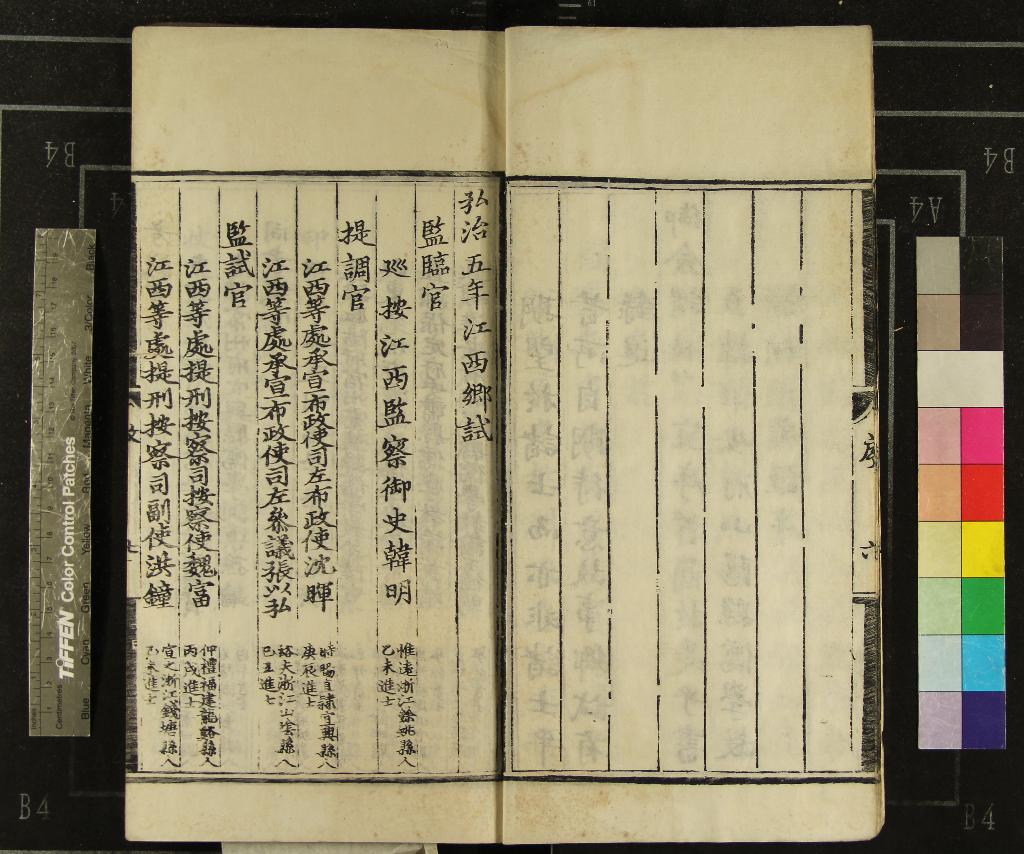 序
六
弘治五年江西鄉試
監臨官
巡按江西監察御史韓明
惟遠浙江餘姚縣人
乙未進士
提調官
江西等處承宣布政使司左布政使沈暉
時暘直隸宜興縣人
庚辰進士
江西等處承宣布政使司左參議張以弘
裕夫浙江山陰縣人
己丑進士
監試官
江西等處提刑按察司按察使魏富
仲禮福建龍谿縣人
丙戌進士
江西等處提刑按察司副使洪鐘
宣之浙江錢塘縣人
乙未進士
B4
B4
A4
B4
B4
TIFFEN Color Control Patches
Blue
Cyan
Green
Yellow
Red
Magenta
White
3/Color
Black
Inches
Centimetres